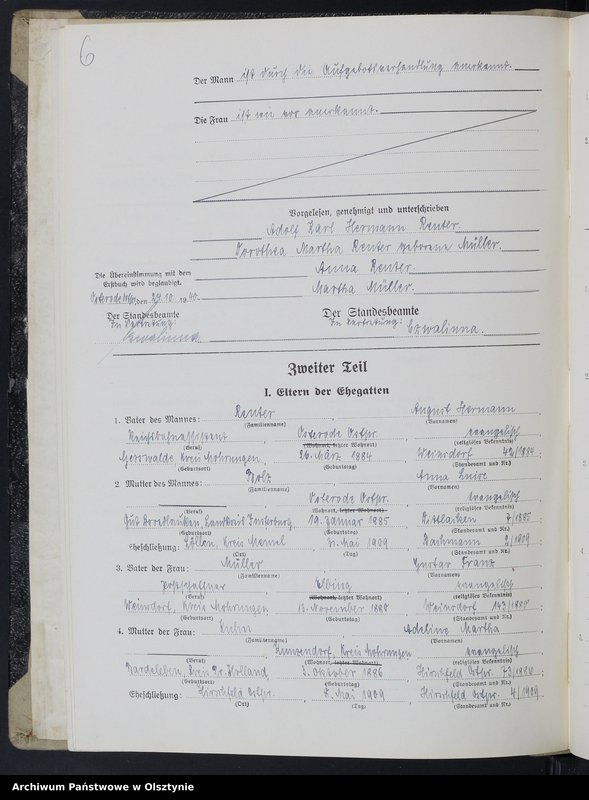 6
Der Mann ist durch die Aufgebotsverhandlung anerkannt.
Die Frau ist wie vor anerkannt.
Vorgelesen, genehmigt und unterschrieben
Adolf Karl Hermann Renter
Dorothea Martha Renter geborene Müller.
Anna Renter
Martha Müller.
Die Übereinstimmung mit dem
Erstbuch wird beglaubigt.
Osterode Ostpr., den 29. 10. 1940.
Der Standesbeamte
In Vertretung:
Czwalinna
Der Standesbeamte
In Vertretung: Czwalinna.
Zweiter Teil
I. Eltern der Ehegatten
1. Vater des Mannes: Renter, August Hermann
(Familienname) (Vornamen)
Reichsbahnassistent, Osterode Ostpr., evangelisch
(Beruf) (Wohnort, letzter Wohnort) (religiöses Bekenntnis)
Gerswalde Kreis Mohrungen, 26. März 1884, Weinsdorf 42/1884;
(Geburtsort) (Geburtstag) (Standesamt und Nr.)
2. Mutter des Mannes: Bolz, Anna Luise
(Familienname) (Vornamen)
Osterode Ostpr. evangelisch
(Beruf) (Wohnort, letzter Wohnort) (religiöses Bekenntnis)
Gut Landkreis Insterburg, 19. Januar 1885, 7/1885;
(Geburtsort) (Geburtstag) (Standesamt und Nr.)
Eheschließung: Löllen, Kreis Memel, Mai 1909, Dachmann 2/1909
(Ort) (Tag) (Standesamt und Nr.)
3. Vater der Frau: Müller, Gustav Franz
(Familienname) (Vornamen)
Postschaffner, Elbing, evangelisch
(Beruf) (Wohnort, letzter Wohnort) (religiöses Bekenntnis)
Weinsdorf, Kreis Mohrungen, 13. November 1880, Weinsdorf 143/1880;
(Geburtsort) (Geburtstag) (Standesamt und Nr.)
4. Mutter der Frau: Kuhn, Adeline Martha
(Familienname) (Vornamen)
Kunzendorf, Kreis Mohrungen, evangelisch
(Beruf) (Wohnort, letzter Wohnort) (religiöses Bekenntnis)
Bardeleben, Kreis Pr. Holland, 3. Oktober 1886, Hirschfeld Ostpr. 73/1886;
(Geburtsort) (Geburtstag) (Standesamt und Nr.)
Eheschließung: Hirschfeld Ostpr., Mai 1909, Hirschfeld Ostpr. 4/1909.
(Ort) (Tag) (Standesamt und Nr.)
Archiwum Państwowe w Olsztynie